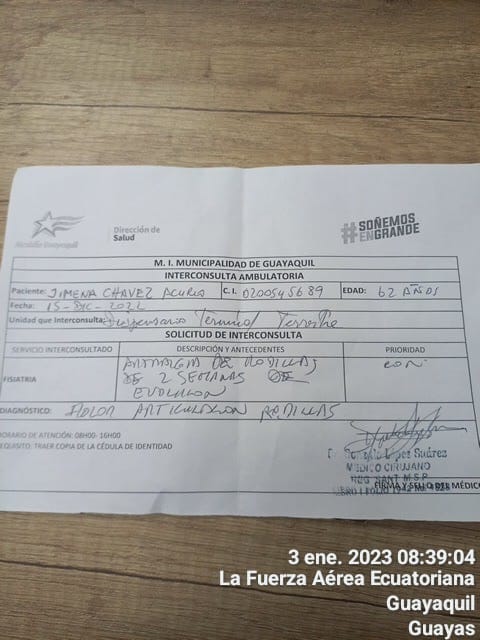 Alcaldía Guayaquil
Dirección de
Salud
#SOÑEMOS
ENGRANDE
M. I. MUNICIPALIDAD DE GUAYAQUIL
INTERCONSULTA AMBULATORIA
Paciente: JIMENA CHAVEZ ACURIO C.I. 0200545689 EDAD: 62 AÑOS
Fecha: 15-DIC-2022
Unidad que Interconsulta: Dispensario Terminal Terrestre
SOLICITUD DE INTERCONSULTA
SERVICIO INTERCONSULTADO DESCRIPCIÓN Y ANTECEDENTES PRIORIDAD
FISIATRIA
ARTRALGIA DE RODILLAS
DE 2 SEMANAS DE
EVOLUCION
DIAGNÓSTICO: DOLOR ARTICULACION RODILLAS
HORARIO DE ATENCIÓN: 08H00- 16H00
REQUISITO: TRAER COPIA DE LA CÉDULA DE IDENTIDAD
López Suárez
MEDICO CIRUJANO
REG. SANT M.S.P.
LIBRO I FOLIO
FIRMA Y SELLO DEL MÉDICO
3 ene. 2023 08:39:04
La Fuerza Aérea Ecuatoriana
Guayaquil
Guayas